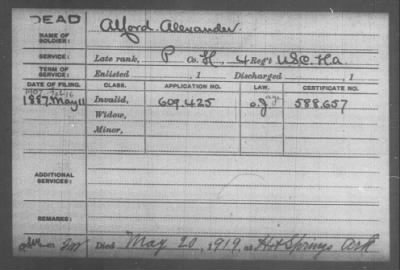 DEAD
NAME OF SOLDIER: Alford Alexander.
SERVICE: Late rank, P Co. H, 4 Reg't U.S.C.H.a.
TERM OF SERVICE: Enlisted , 1 Discharged , 1
DATE OF FILING. CLASS. APPLICATION NO. LAW. CERTIFICATE NO.
1887. May 11 Invalid, 609.425 588.657
Widow,
Minor,
ADDITIONAL SERVICES:
REMARKS:
Died May 20, 1919, at Hot Springs Ark